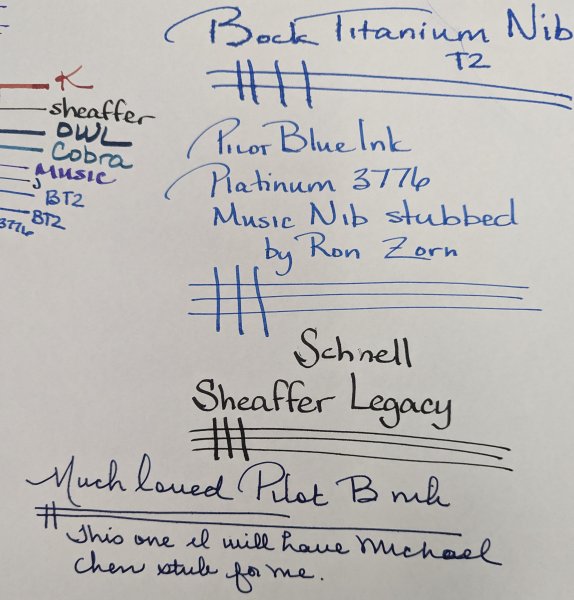 K
Sheaffer
OWL
Cobra
Music
BT2
BT2
3776
Bock Titanium Nib
T2
Pilot Blue Ink
Platinum 3776
Music Nib stubbed
by Ron Zorn
Schnell
Sheaffer Legacy
Much loved Pilot B nib
This one I will have Michael
Chen stub for me.